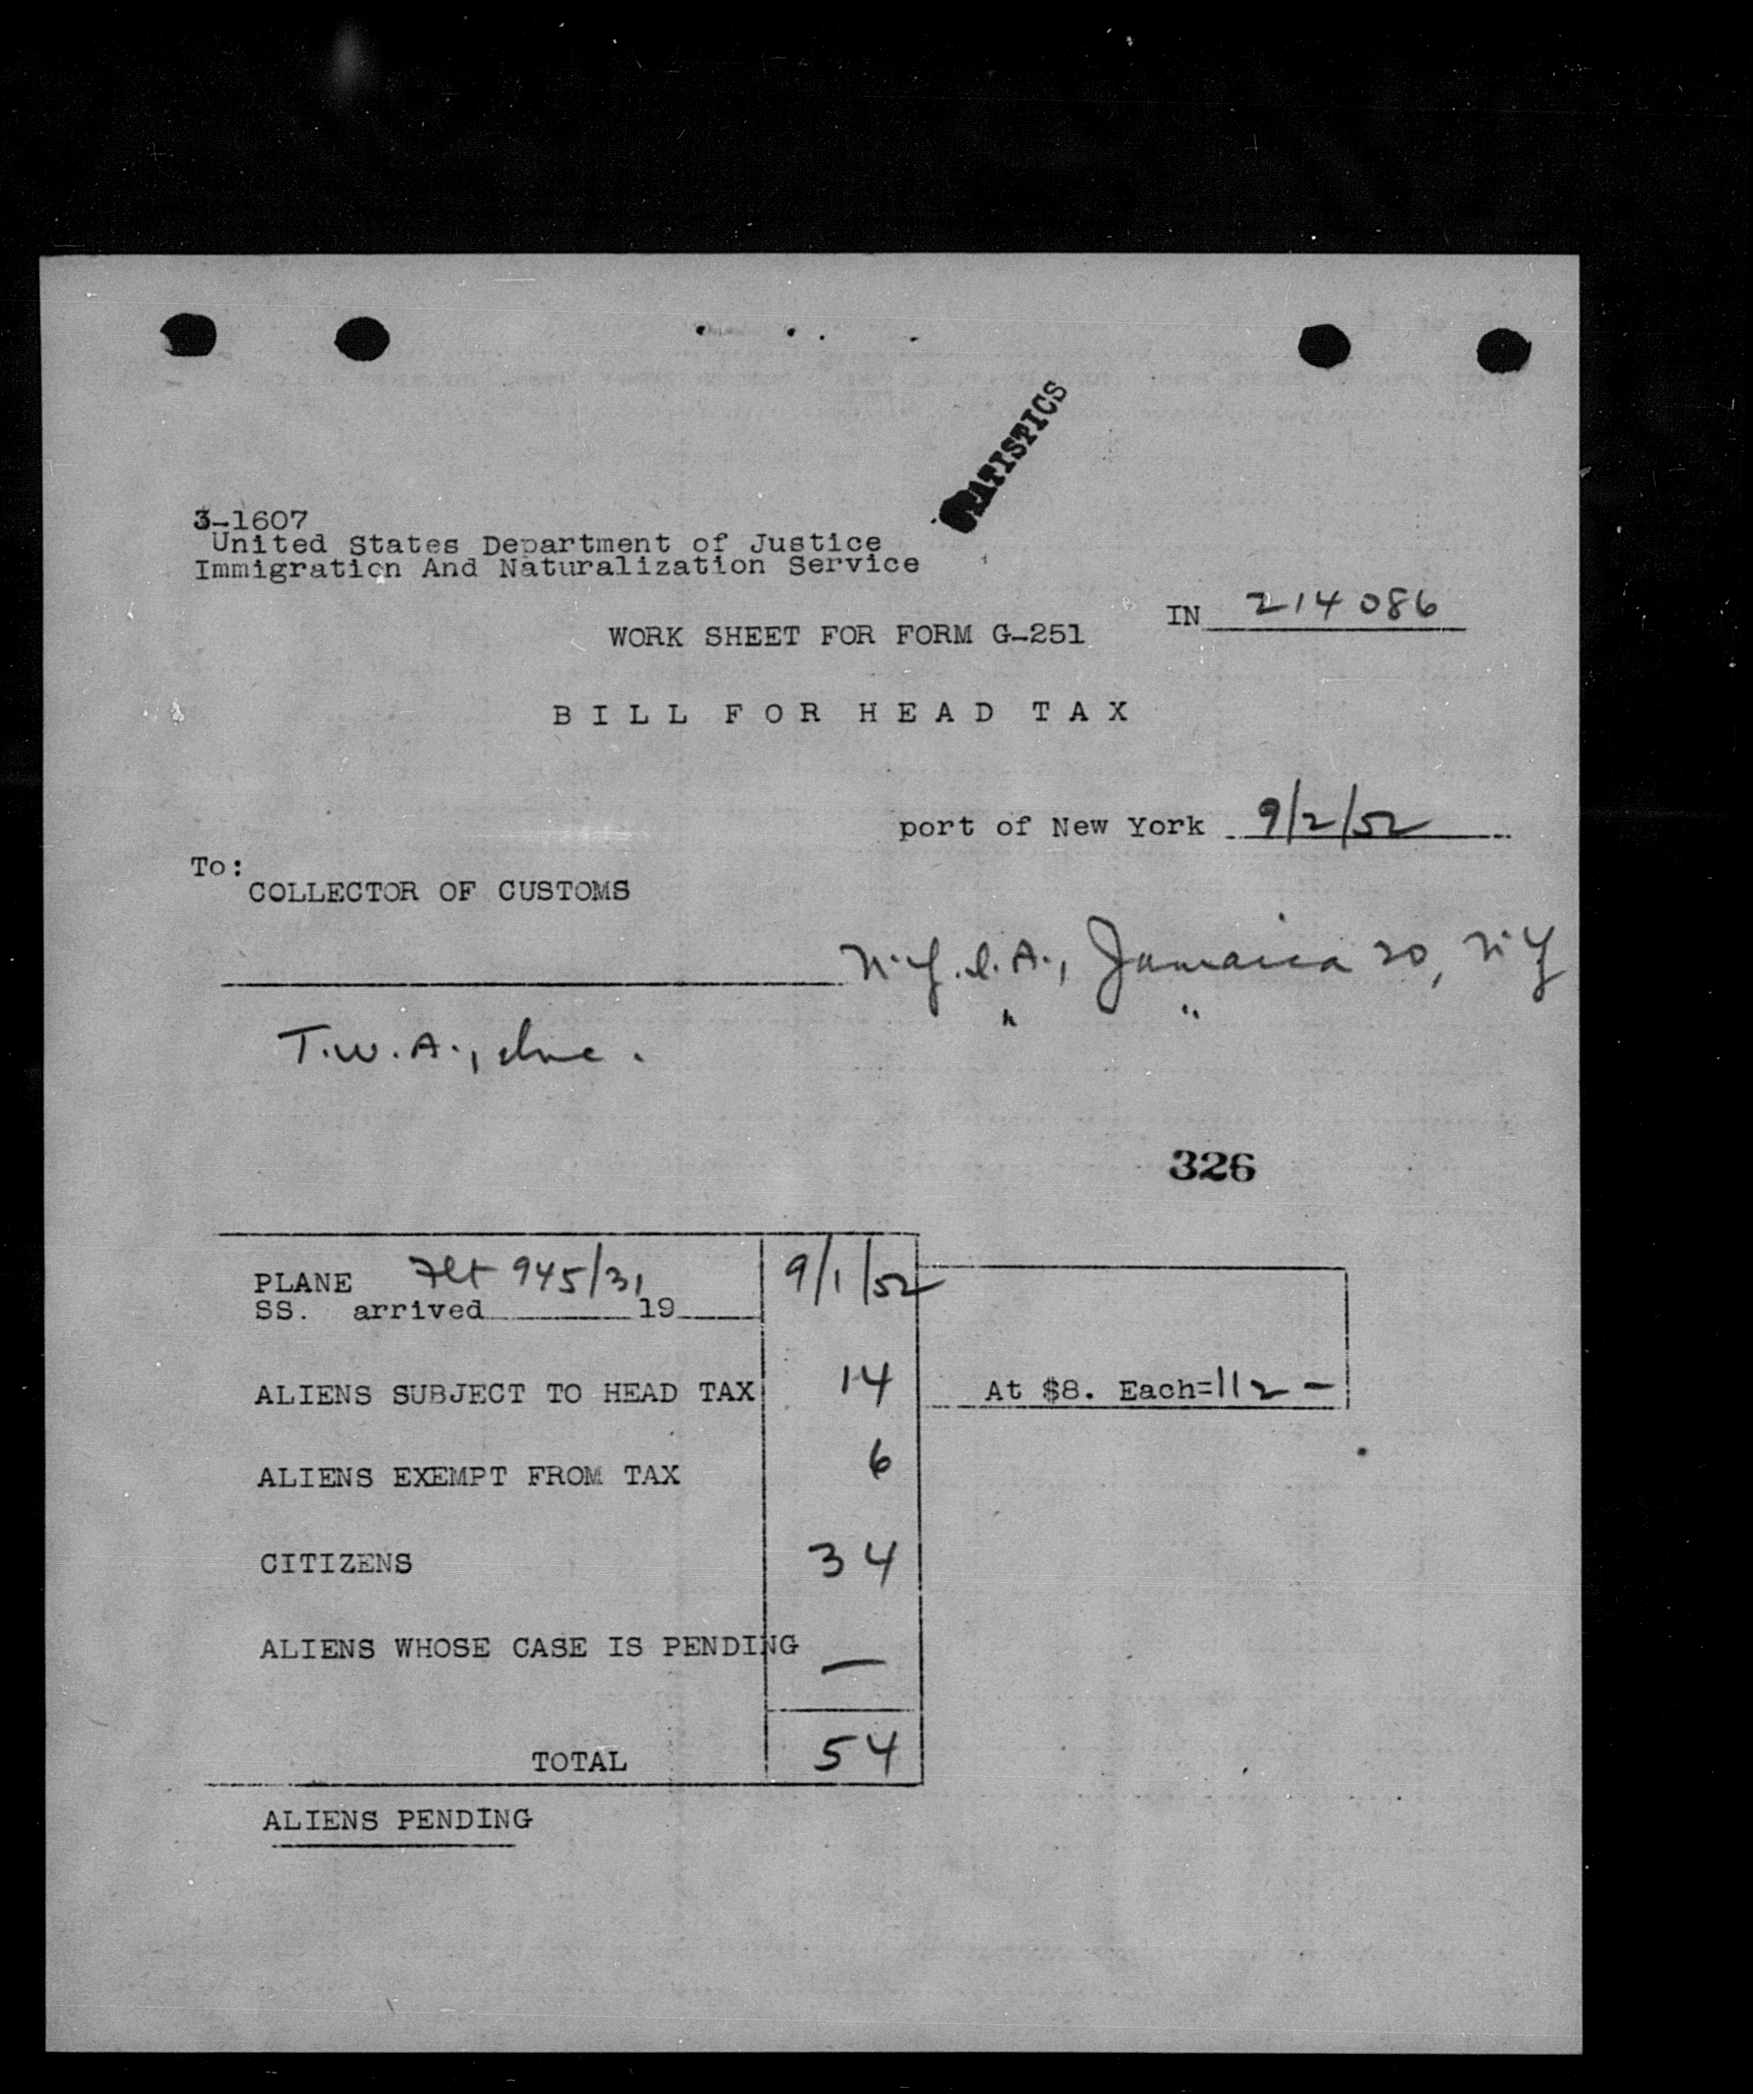 STATISTICS
3-1607
United States Department of Justice
Immigration And Naturalization Service
IN 214086
WORK SHEET FOR FORM G-251
BILL FOR HEAD TAX
port of New York 9/2/52
To:
COLLECTOR OF CUSTOMS
N.Y.I.A., Jamaica 20, NY
" "
T.W.A., Inc.
326
PLANE Flt 945/31 9/1/52
SS. arrived 19
ALIENS SUBJECT TO HEAD TAX 14 At $8. Each=112 -
ALIENS EXEMPT FROM TAX 6
CITIZENS 34
ALIENS WHOSE CASE IS PENDING —
TOTAL 54
ALIENS PENDING